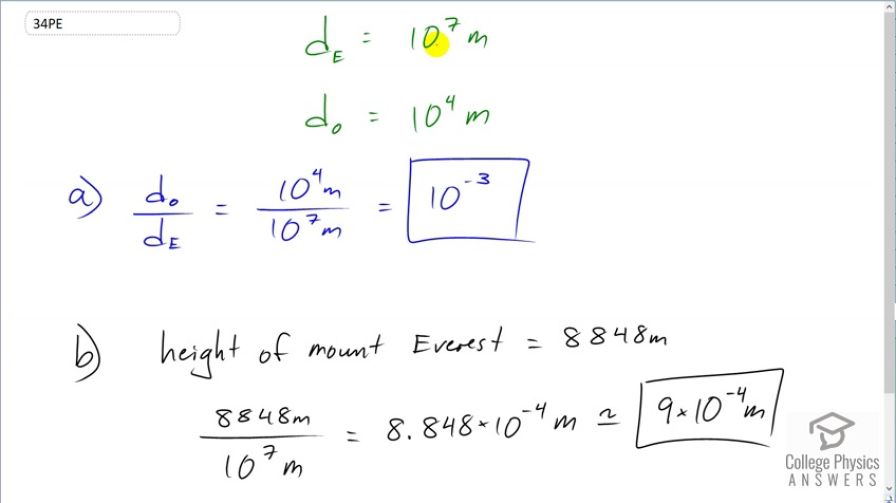 34PE
d_E = 10^7 m
d_o = 10^4 m
a) d_o / d_E = 10^4 m / 10^7 m = 10^-3
b) height of mount Everest = 8848m
8848m / 10^7 m = 8.848×10^-4 m ≃ 9×10^-4 m
College Physics
ANSWERS